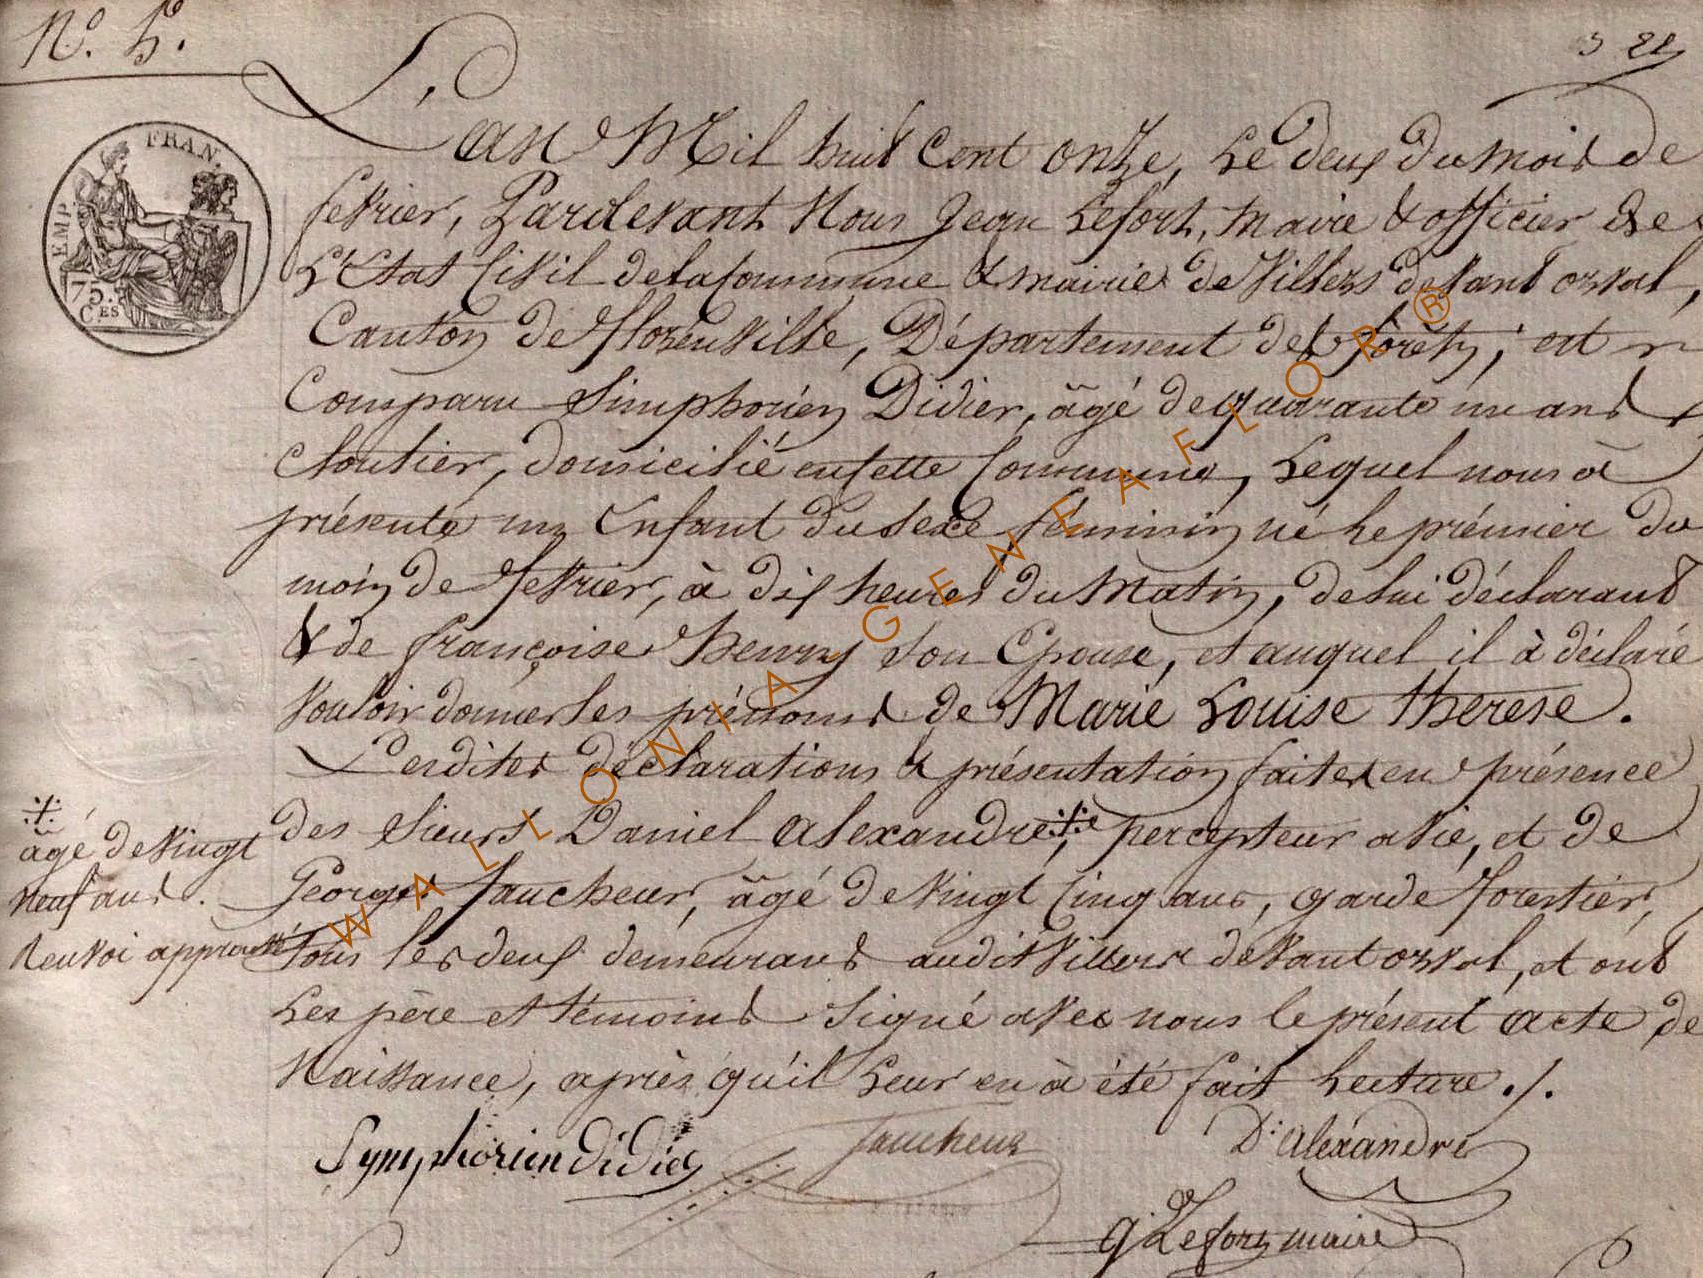 N.° 5.
L'an Mil huit Cent onze, Le deux du mois de
fevrier, Pardevant Nous Jean Lefort, Maire & officier de
L'Etat Civil de la Commune & mairie de Villers devant orval,
Canton de florenville, Département des forêts, est
Comparu Simphorien Didier, âgé de quarante un ans
cloutier, domicilié en cette Commune, Lequel nous à
présenté un Enfant du sexe féminin né le prémier du
mois de fevrier, à dix heures du Matin, de lui déclarant
& de françoise Henry son Epouse, et auquel il à déclaré
vouloir donner les prénoms de Marie Louise therese.
Lesdites déclarations & présentation faites en présence
des sieurs Daniel alexandre, percepteur a vie, et de
âgé de vingt
neuf ans.
Renvoi approuvé
George faucheur, âgé de vingt Cinq ans, garde forestier,
tous les deux démeurant audit Villers dévant orval, et ont
Les père et témoins signé avec nous le présent acte de
Naissance, après qu'il Leur en à été fait Lecture ./.
Symphorien didier
faucheur
D: alexandre
Lefort maire
FRAN.
EMP.
75.
CES
WALLONIA GENEAFLOR®